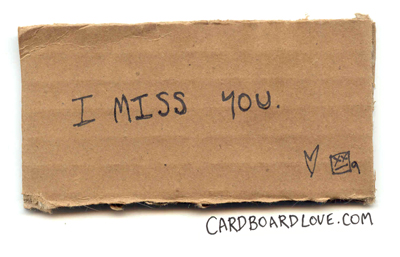 I MISS YOU.
CARDBOARDLOVE.COM